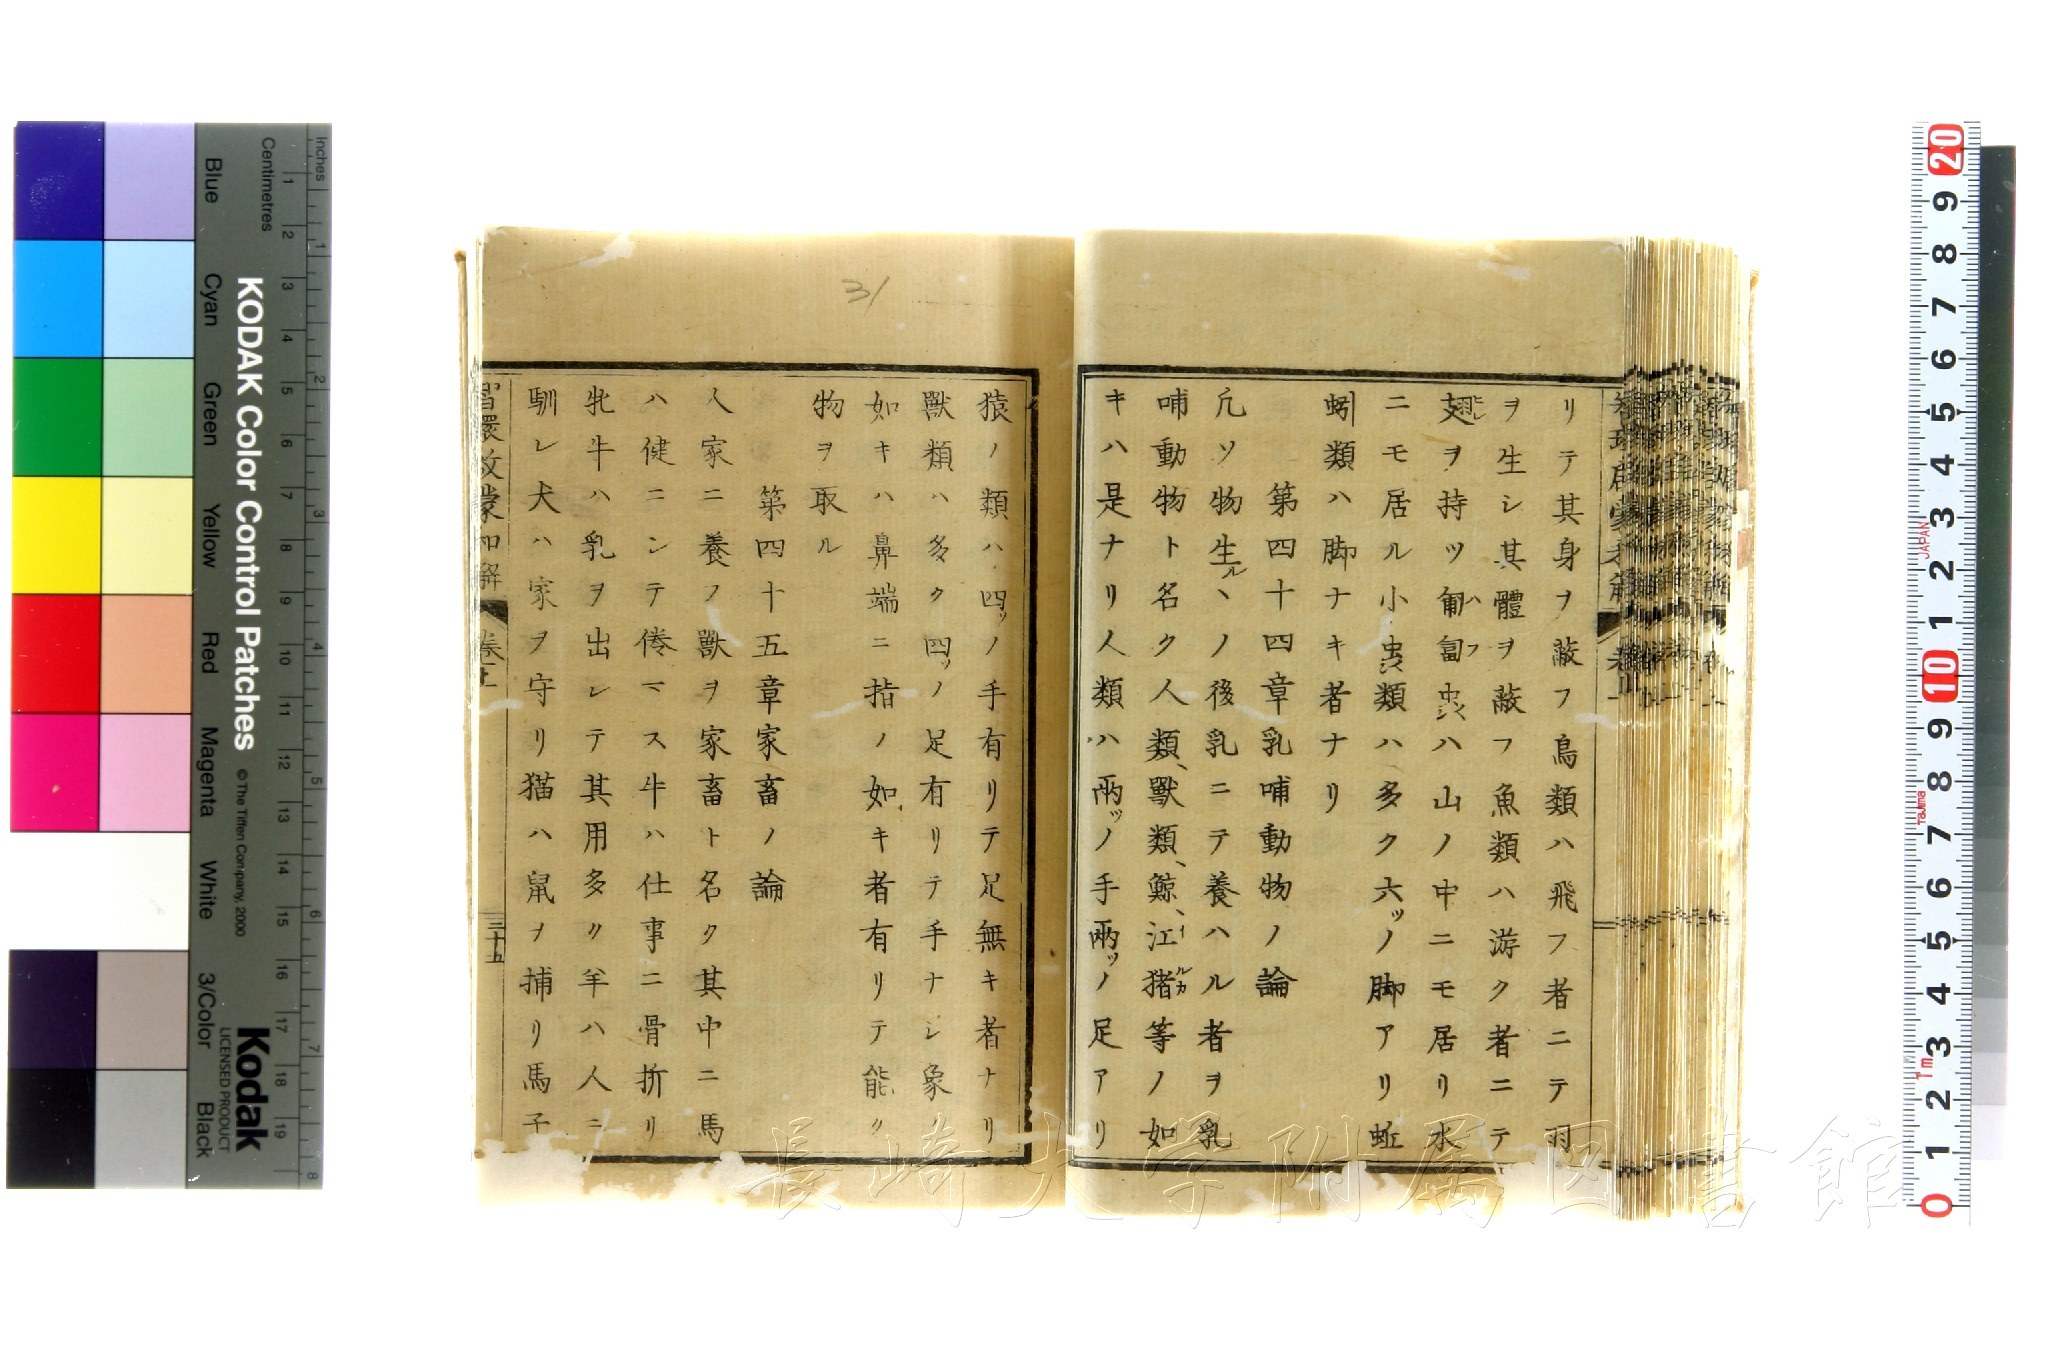 リテ其身ヲ蔽フ鳥類ハ飛フ者ニテ羽
ヲ生シ其體ヲ蔽フ魚類ハ游ク者ニテ
翅ヲ持ツ匍匐虫ハ山ノ中ニモ居リ水
ニモ居ル小虫類ハ多ク六ッノ脚アリ蚯
蚓類ハ脚ナキ者ナリ
第四十四章乳哺動物ノ論
凢ソ物生ルヽノ後乳ニテ養ハル者ヲ乳
哺動物ト名ク人類、獸類、鯨、江猪等ノ如
キハ是ナリ人類ハ兩ッノ手兩ッノ足アリ
猿ノ類ハ四ッノ手有リテ足無キ者ナリ
獸類ハ多ク四ッノ足有リテ手ナシ象ノ
如キハ鼻端ニ指ノ如キ者有リテ能ク
物ヲ取ル
第四十五章家畜ノ論
人家ニ養フ獸ヲ家畜ト名ク其中ニ馬
ハ健ニシテ倦マス牛ハ仕事ニ骨折リ
牝牛ハ乳ヲ出シテ其用多ク羊ハ人ニ
馴レ犬ハ家ヲ守リ猫ハ鼠ヲ捕リ馬子
智環啟蒙和解
三十五
31
長崎大学附属図書館
KODAK Color Control Patches
© The Tiffen Company, 2000
Kodak
LICENSED PRODUCT
Inches
Centimetres
Blue
Cyan
Green
Yellow
Red
Magenta
White
3/Color
Black
1 2 3 4 5 6 7 8 9 10 11 12 13 14 15 16 17 18 19
1 2 3 4 5 6 7 8
20 9 8 7 6 5 4 3 2 1 10 9 8 7 6 5 4 3 2 1 0
JAPAN
Tajima
Tm